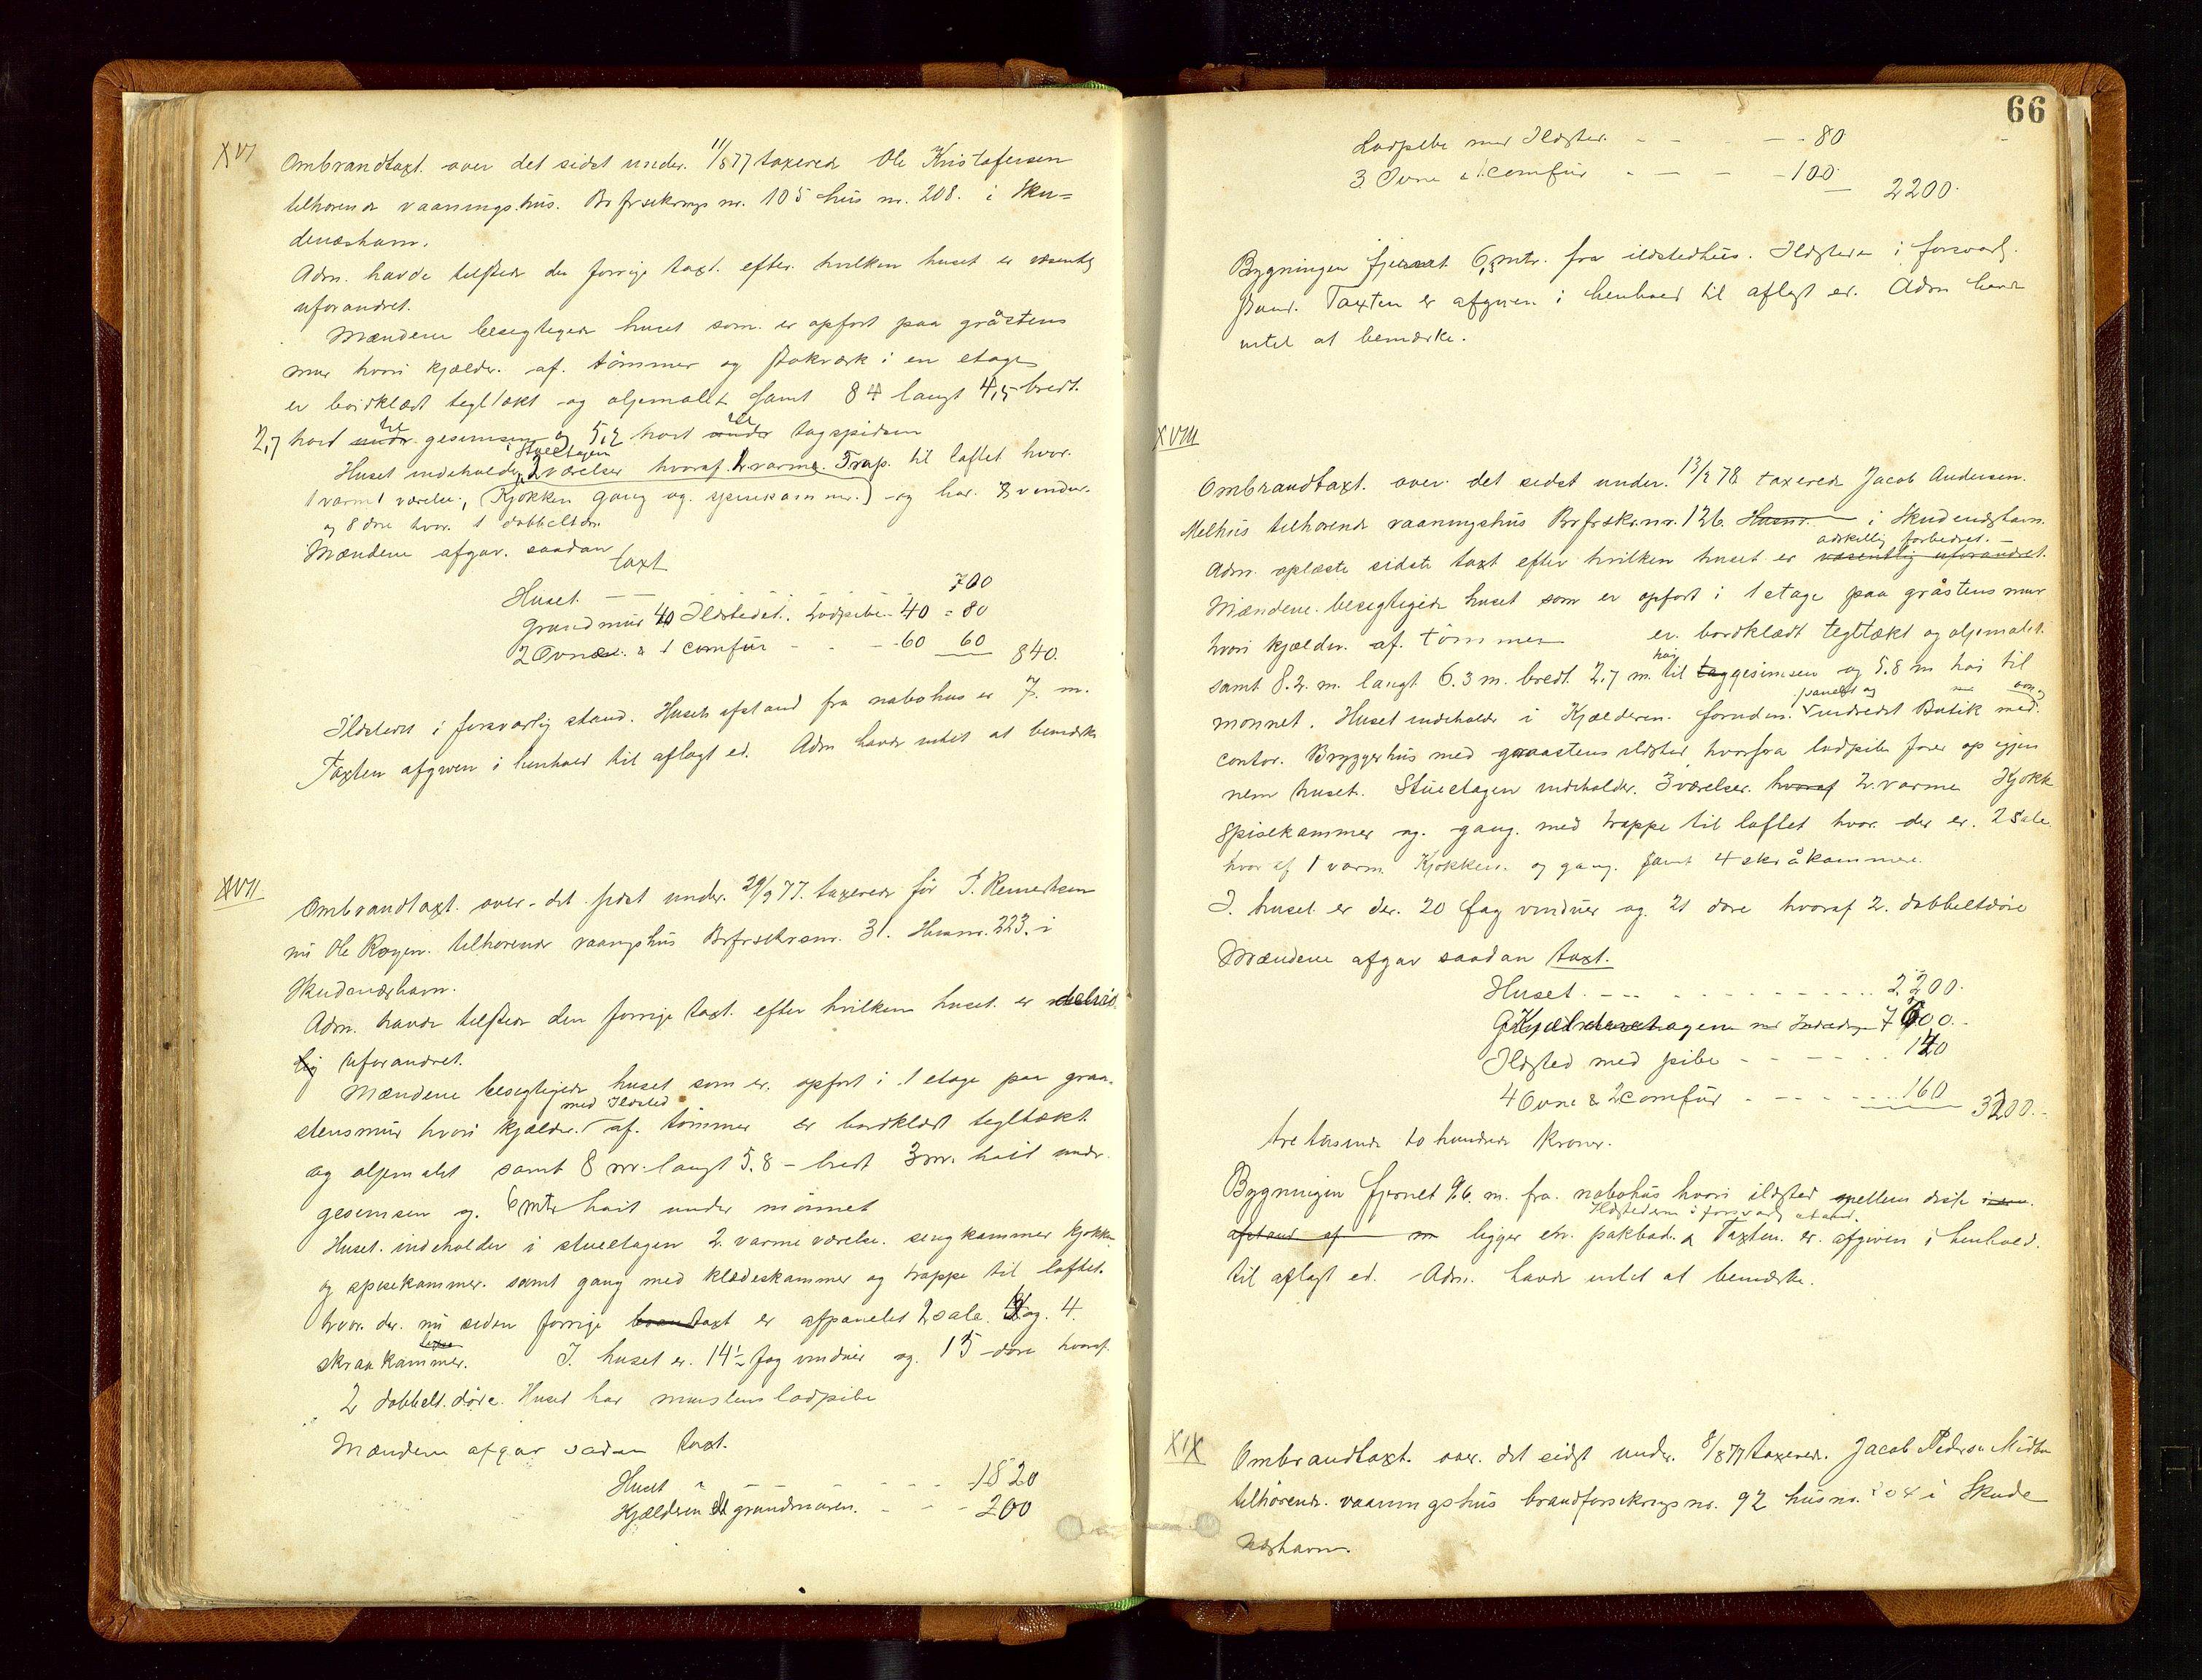 XVI
Ombrandtaxt. over det sidst under. 11/8 77 taxerede Ole Kristofersen
tilhorende vaaningshus. Brfrsikrings nr. 105 hus nr. 208. i Sku=
denæshavn.
Adm. havde tilstede den forrige taxt. efter. hvilken huset er væsentlig
uforandret.
Mændene besegtigede huset som. er opfort paa gråstens
mur hvori kjælder. af. tømmer og stakværk i en etage
er bordklædt tegltækt og oljemalet samt 84 langt 4,5 bredt.
2,7 hoit under til gesimsen og 5,2 hoit under til tagspidsen
Huset indeholder i Stuetagen 2 værelser hvoraf 1 varme. Trap. til loftet hvor.
1 varmt værelse, (Kjøkken gang og. spisekammer.) og har. 8 vinduer
og 8 døre hvor. 1 dobbeltdør.
Mændene afgav. saadan
taxt
Huset. 700
Grundmur 40 Ildstedet. Ladpibe 40 = 80
2 Ovne & 1 comfur - - 60 60 840.
Ildstedet i forsvarlig stand. Husets afstand fra nabohus er 7. m.
Taxten afgiven i henhold til aflagt ed. Adm havde intet at bemærke
XVII
Ombrandtaxt. over det sidst under. 29/9 77. taxerede før I.
nu Ole tilhorende vaangshus Brfrsikrsnr. 31. Husnr. 223. i
Skudenæshavn.
Adm. havde tilstede den forrige taxt. efter hvilken huset er delvis
lig uforandret.
Mændene besegtigede huset som er. opfort i 1 etage paa graa-
stensmur hvori kjælder. med Ildsted af. tømmer er bordklædt tegltækt
og oljemalet samt 8 m. langt 5.8 - bredt 3 m. hoit under
gesimsen og. 6 mtr hoit under mønnet
Huset. indeholder i stueetagen 2. varme værelse. sengkammer kjøkken
og spisekammer. samt gang med klædeskammer og trappe til loftet
hvor. der. nu siden forrige brandtaxt er afpanelet 2 sale. og. 4.
skraakammer. I. huset er. 14½ fag vinduer og. 15 døre hvoraf
2 dobbelt. døre. Huset har murstensladpibe
Mændene afgav sadan taxt.
Huset - - - - 1820
Kjælderen & grundmuren. - - - 200
66
Ladpibe med Ildsted. - - - - 80
3 Ovne & 1 comfur - - - - 100. 2200.
Bygningen fjernet 6,3 mtr. fra ildstedhus. Ildstedene i forsvarl.
stand. Taxten er afgiven i henhold til aflagt ed. Adm havde
intet at bemærke.
XVIII
Ombrandtaxt. over. det sidst under. 13/2 78 taxerede Jacob Andersen.
Melhus tilhorende vaaningshus Brfrskr.nr. 126. Husnr. i Skudenæshavn.
adskillig forbedret.
Adm. oplæste sidste taxt efter hvilken huset er væsentlig uforandret.
Mændene. besegtigede huset som er opfort i 1 etage paa gråstens mur
hvori kjælder. af. tømmer er. bordklædt tegltækt og oljemalet.
samt 8.2. m. langt 6.3 m. bredt 2.7 m. høi til taggesimsen og 5.8 m høi til
mønnet. Huset indeholder i Kjælderen. foruden. panelet og indredet Butik med
contor. Bryggerhus med graastens ildsted, hvorfra ladpibe fører op igjen
nem huset. Stueetagen indeholder. 3 værelser. hvoraf 2. varme Kjøkk
spisekammer og. gang. med trappe til loftet hvor. der er. 2 sale.
hvor af 1 varm. Kjøkken. og gang. samt 4 skråkammere.
I. huset er der. 20 fag vinduer og. 21 døre hvoraf 2. dobbeltdøre
Mændene afgav saadan taxt.
Huset. - - - 2200.
Kjælderetagen med Indredning 700.
Ildsted med pibe - - - - 140
4 Ovne & 2 comfur - - - - 160 3200.-
tre tusinde to hundrede Kroner.
Bygningen fjernet 9.6. m. fra. nabohus hvori ildsted mellem disse i en
Ildstederne i forsvarl stand.
afstand af m ligger en. pakbod. & Taxten. er. afgiven i henhold.
til aflagt ed. Adm. havde intet at bemærke.
XIX
Ombrandtaxt. over. det sidst under. 8/8 77 taxerede. Jacob Pederse Midbø
tilhørende. vaaningshus brandforsikrings nr. 92 husnr. 204 i Skude
næshavn.